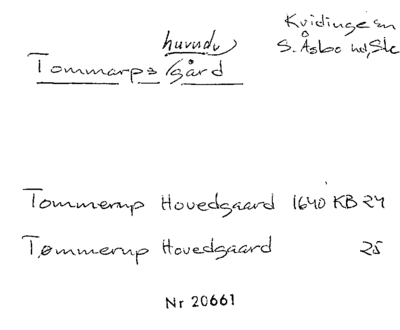 Kvidinge sn
S. Åsbo hd, Sk
huvud
Tommarps gård
Tommerup Hovedgaard 1640 KB 24
Tømmerup Hovedgaard 25
Nr 20661